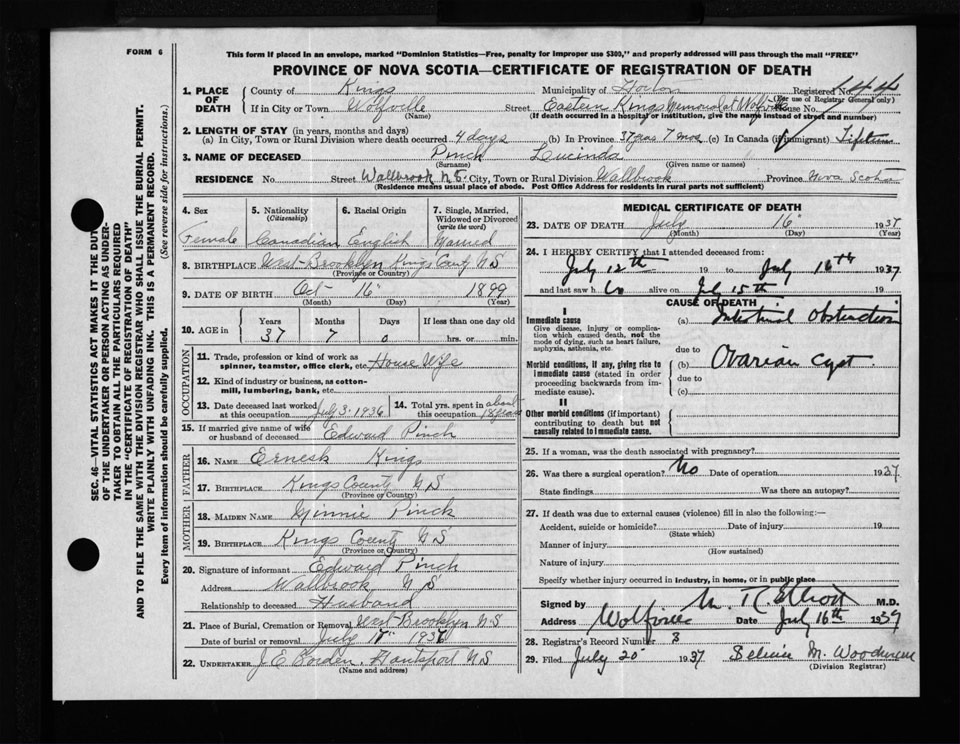 FORM 6
This form if placed in an envelope, marked "Dominion Statistics—Free, penalty for improper use $300," and properly addressed will pass through the mail "FREE"
PROVINCE OF NOVA SCOTIA—CERTIFICATE OF REGISTRATION OF DEATH
1. PLACE OF DEATH County of Kings Municipality of Horton Registered No. 44
(For use of Registrar General only)
If in City or Town Wolfville Street Eastern Kings Memorial at Wolfville House No.
(Name) (If death occurred in a hospital or institution, give the name instead of street and number)
2. LENGTH OF STAY (in years, months and days)
(a) In City, Town or Rural Division where death occurred 4 days (b) In Province 37 yrs 7 mos (c) In Canada (if immigrant)
3. NAME OF DECEASED Pinch Lucinda
(Surname) (Given name or names)
RESIDENCE No. Street Wallbrook N.S. City, Town or Rural Division Wallbrook Province Nova Scotia
(Residence means usual place of abode. Post Office Address for residents in rural parts not sufficient)
SEC. 46—VITAL STATISTICS ACT MAKES IT THE DUTY
OF THE UNDERTAKER OR PERSON ACTING AS UNDERTAKER TO OBTAIN ALL THE PARTICULARS REQUIRED
IN THE "CERTIFICATE OF REGISTRATION OF DEATH"
AND TO FILE THE SAME WITH THE DIVISION REGISTRAR WHO SHALL ISSUE THE BURIAL PERMIT.
WRITE PLAINLY WITH UNFADING INK. THIS IS A PERMANENT RECORD.
Every item of information should be carefully supplied. (See reverse side for instructions.)
4. Sex 5. Nationality (Citizenship) 6. Racial Origin 7. Single, Married, Widowed or Divorced (write the word)
Female Canadian English Married
8. BIRTHPLACE West-Brooklyn Kings County NS
(Province or Country)
9. DATE OF BIRTH Oct 16" 1899
(Month) (Day) (Year)
10. AGE in Years Months Days If less than one day old
37 7 0 hrs. or min.
OCCUPATION
11. Trade, profession or kind of work as spinner, teamster, office clerk, etc. House Wife
12. Kind of industry or business, as cotton-mill, lumbering, bank, etc.
13. Date deceased last worked at this occupation July 3. 1936 14. Total yrs. spent in this occupation about 18 years
15. If married give name of wife or husband of deceased Edward Pinch
FATHER
16. NAME Ernesk Kings
17. BIRTHPLACE Kings County NS
(Province or Country)
MOTHER
18. MAIDEN NAME Minnie Pinck
19. BIRTHPLACE Kings County NS
(Province or Country)
20. Signature of informant Edward Pinch
Address Wallbrook NS
Relationship to deceased Husband
21. Place of Burial, Cremation or Removal West-Brooklyn NS
Date of burial or removal July 17" 1936
22. UNDERTAKER J. E. Borden, Hantsport NS
(Name and address)
MEDICAL CERTIFICATE OF DEATH
23. DATE OF DEATH July 16" 1937
(Month) (Day) (Year)
24. I HEREBY CERTIFY that I attended deceased from:
July 12th 19 to July 16th 1937
and last saw h alive on July 15th 19
CAUSE OF DEATH
I
Immediate cause (a) Intestinal Obstruction
Give disease, injury or complication which caused death, not the mode of dying, such as heart failure, asphyxia, asthenia, etc.
due to
Morbid conditions, if any, giving rise to immediate cause (stated in order proceeding backwards from immediate cause). (b) Ovarian Cyst.
due to
(c)
II
Other morbid conditions (if important) contributing to death but not causally related to immediate cause.
25. If a woman, was the death associated with pregnancy?
26. Was there a surgical operation? No Date of operation 1937
State findings Was there an autopsy?
27. If death was due to external causes (violence) fill in also the following:—
Accident, suicide or homicide? Date of injury 19
(State which)
Manner of injury
(How sustained)
Nature of injury
Specify whether injury occurred in industry, in home, or in public place
Signed by M. R. Elliott M.D.
Address Wolfville Date July 16th 1937
28. Registrar's Record Number 3
29. Filed July 20 1937 M. Woodman
(Division Registrar)